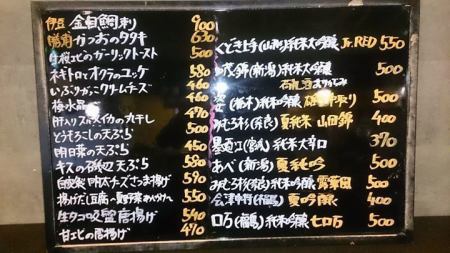 伊豆 金目鯛刺り 900
勝浦 かつおのタタキ 630
桜エビのガーリックトースト 580
ネギトロとオクラのユッケ 580
いぶりがっこクリームチーズ 460
極小品 460
肝入スルメイカの丸干し 470
とうもろこしの天ぷら 500
明日葉の天ぷら 450
キスの磯辺天ぷら 580
自家製 明太チーズさつま揚げ 590
揚げだし豆腐 夏野菜あんかけ 550
生タコ唐揚げ 540
甘エビの唐揚げ 470
くどき上手(山形)純米大吟醸 Jr.RED 550
(新潟)純米吟醸 500
石札酒 おりがらみ
(栃木)純米吟醸 500
みむろ杉(奈良)夏純米 山田錦 400
墨廼江(宮城)純米大辛口 370
あべ(新潟)夏純吟 500
みむろ杉(奈良)純米吟醸 露葉風 500
会津中将(福島)夏吟醸 400
ロ万(福島)純米吟醸 七ロ万 500